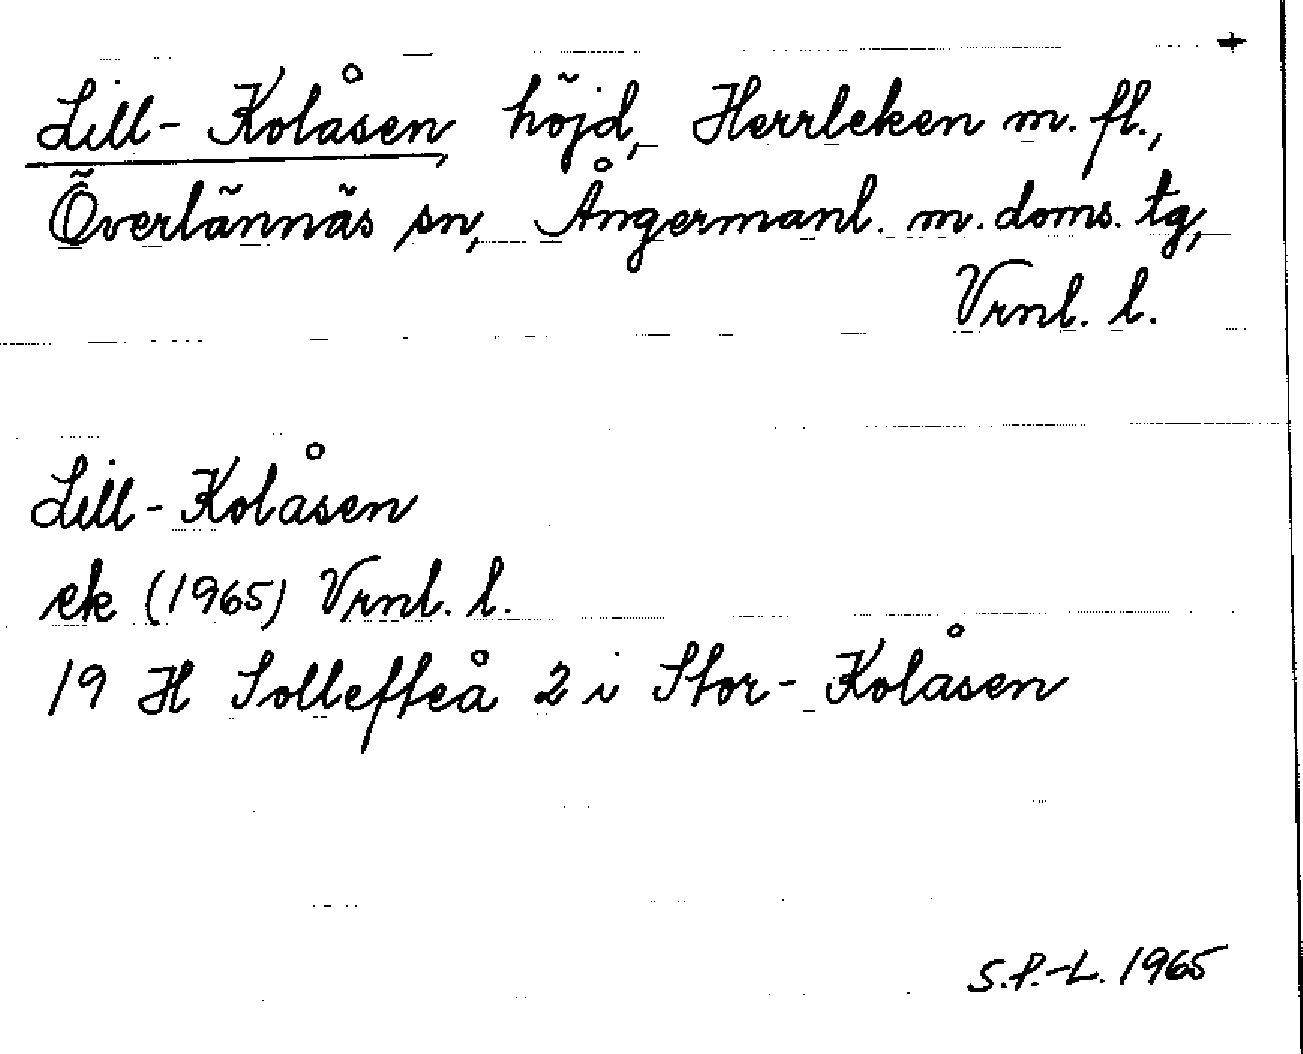 +
Lill-Kolåsen, höjd, Herrleken m. fl.,
Överlännäs sn, Ångermanl. m. doms. tg,
Vrnl. l.
Lill-Kolåsen
ek (1965) Vrnl. l.
19 H Sollefteå 2 i Stor-Kolåsen
S.P.-L. 1965